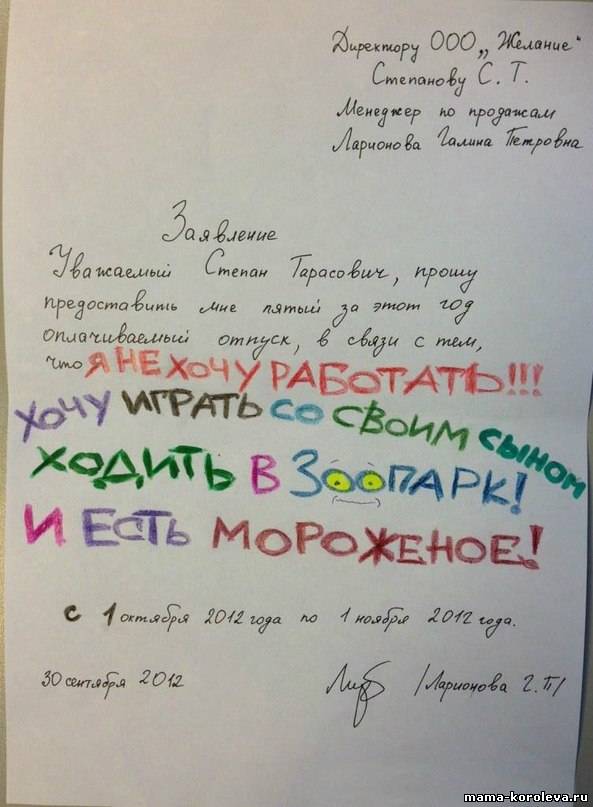 Директору ООО „Желание"
Степанову С. Т.
Менеджер по продажам
Ларионова Галина Петровна
Заявление
Уважаемый Степан Тарасович, прошу
предоставить мне пятый за этот год
оплачиваемый отпуск, в связи с тем,
что Я НЕ ХОЧУ РАБОТАТЬ!!!
ХОЧУ ИГРАТЬ СО СВОИМ СЫНОМ
ХОДИТЬ В ЗООПАРК!
И ЕСТЬ МОРОЖЕНОЕ!
с 1 октября 2012 года по 1 ноября 2012 года.
30 сентября 2012 /Ларионова Г. П/
mama-koroleva.ru